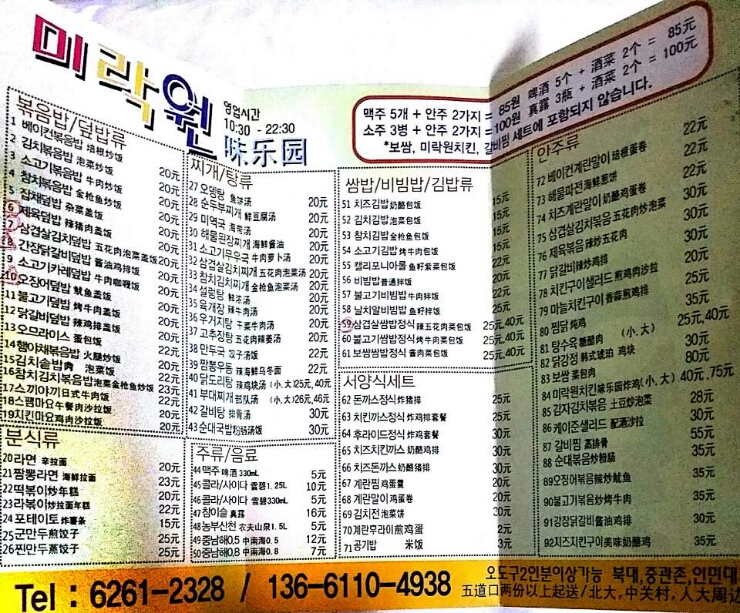 미락원
味乐园
영업시간
10:30 - 22:30
맥주 5개 + 안주 2가지 = 85원 啤酒 5个 + 酒菜 2个 = 85元
소주 3병 + 안주 2가지 = 100원 真露 3瓶 + 酒菜 2个 = 100元
*보쌈, 미락원치킨, 갈비찜 세트에 포함되지 않습니다.
볶음밥/덮밥류
1 베이컨볶음밥 培根炒饭 20元
2 김치볶음밥 泡菜炒饭 20元
3 소고기볶음밥 牛肉炒饭 20元
4 참치볶음밥 金枪鱼炒饭 20元
5 잡채덮밥 杂菜盖饭 20元
6 제육덮밥 辣猪肉盖饭 20元
7 삼겹살김치덮밥 五花肉泡菜盖饭 20元
8 간장닭갈비덮밥 酱油鸡排饭 20元
9 소고기카레덮밥 牛肉咖喱饭 20元
10 오징어덮밥 鱿鱼盖饭 20元
11 불고기덮밥 烤牛肉盖饭 20元
12 닭갈비덮밥 辣鸡排盖饭 20元
13 오므라이스 蛋包饭 20元
14 햄야채볶음밥 火腿炒饭 22元
15 김치솥밥 泡菜饭 20元
16 참치김치볶음밥 泡菜金枪鱼炒饭 23元
17 스끼야끼 日式牛肉饭 22元
18 스팸마요 午餐肉沙拉饭 20元
19 치킨마요 鸡肉沙拉饭 20元
분식류
20 라면 辛拉面 20元
21 짬뽕라면 海鲜拉面 23元
22 떡볶이 炒年糕 20元
23 라볶이 炒拉面年糕 22元
24 포테이토 炸薯条 15元
25 군만두 煎饺子 20元
26 찐만두 蒸饺子 20元
찌개/탕류
27 오뎅탕 鱼饼汤 20元
28 순두부찌개 鲜豆腐汤 20元
29 미역국 海带汤 20元
30 해물된장찌개 海鲜酱汤 20元
31 소고기무우국 牛肉萝卜汤 20元
32 삼겹살김치찌개 五花肉泡菜汤 20元
33 참치김치찌개 金枪鱼泡菜汤 20元
34 설렁탕 鲜浓汤 20元
35 육개장 辣牛肉汤 20元
36 우거지탕 干菜牛肉汤 20元
37 고추장탕 五花肉辣萎汤 20元
38 만두국 饺子汤饭 22元
39 짬뽕우동 辣海鲜乌冬面 22元
40 닭도리탕 辣鸡块汤 (小,大)25元,40元
41 부대찌개 部队汤 (小,大)26元,46元
42 갈비탕 排骨汤 30元
43 순대국밥 粉肠汤饭 30元
주류/음료
44 맥주 啤酒 330mL 5元
45 콜라/사이다 雪碧 1.25L 10元
46 콜라/사이다 雪碧 330mL 5元
47 참이슬 真露 16元
48 농부산천 农夫山泉1.5L 5元
49 중남해0.5 中南海0.5 12元
50 중남해0.8 中南海0.8 7元
쌈밥/비빔밥/김밥류
51 치즈김밥 奶酪包饭 15元
52 김치김밥 泡菜包饭 15元
53 참치김밥 金枪鱼包饭 15元
54 소고기김밥 烤牛肉包饭
55 캘리포니아롤 鱼籽紫菜包饭
56 비빔밥 普通拌饭
57 불고기비빔밥 牛肉拌饭
58 날치알비빔밥 鱼籽拌饭
59 삼겹살쌈밥정식 辣五花肉菜包饭 25元,40元
60 불고기쌈밥정식 烤牛肉菜包饭 25元,40元
61 보쌈쌈밥정식 酱肉菜包饭 25元,40元
서양식세트
62 돈까스정식 炸猪排 25元
63 치킨까스정식 炸鸡排套餐 30元
64 후라이드정식 炸鸡套餐 30元
65 치즈치킨까스 奶酪鸡排 30元
66 치즈돈까스 奶酪猪排 30元
67 계란찜 鸡蛋羹 20元
68 계란말이 鸡蛋卷 20元
69 김치전 泡菜饼 20元
70 계란후라이 煎鸡蛋 2元
71 공기밥 米饭 3元
안주류
72 베이컨계란말이 培根蛋卷 22元
73 해물파전 海鲜煎饼 22元
74 치즈계란말이 奶酪鸡蛋卷 22元
75 삼겹살김치볶음 五花肉炒泡菜 30元
76 제육볶음 辣炒五花肉 30元
77 닭갈비 辣炒鸡排
78 치킨구이샐러드 煎鸡肉沙拉 25元
79 마늘치킨구이 香蒜煎鸡排 35元
80 찜닭 炖鸡 25元,40元
81 탕수육 糖醋肉 (小,大) 30元
82 닭강정 韩式琥珀鸡块 80元
83 보쌈 菜包肉
84 미락원치킨 味乐园炸鸡(小,大) 40元,75元
85 감자김치볶음 土豆炒泡菜 28元
86 케이준샐러드 配酒沙拉 30元
87 갈비찜 蒸排骨 55元
88 순대볶음 炒粉肠 35元
89 오징어볶음 辣炒鱿鱼 35元
90 불고기볶음 炒烤牛肉 35元
91 강장닭갈비 酱油鸡排 30元
92 치즈치킨구이 美味奶酪鸡 35元
Tel : 6261-2328 / 136-6110-4938
오도구2인분이상가능 북대,중관촌,인민대
五道口两份以上起送/北大,中关村,人大周边